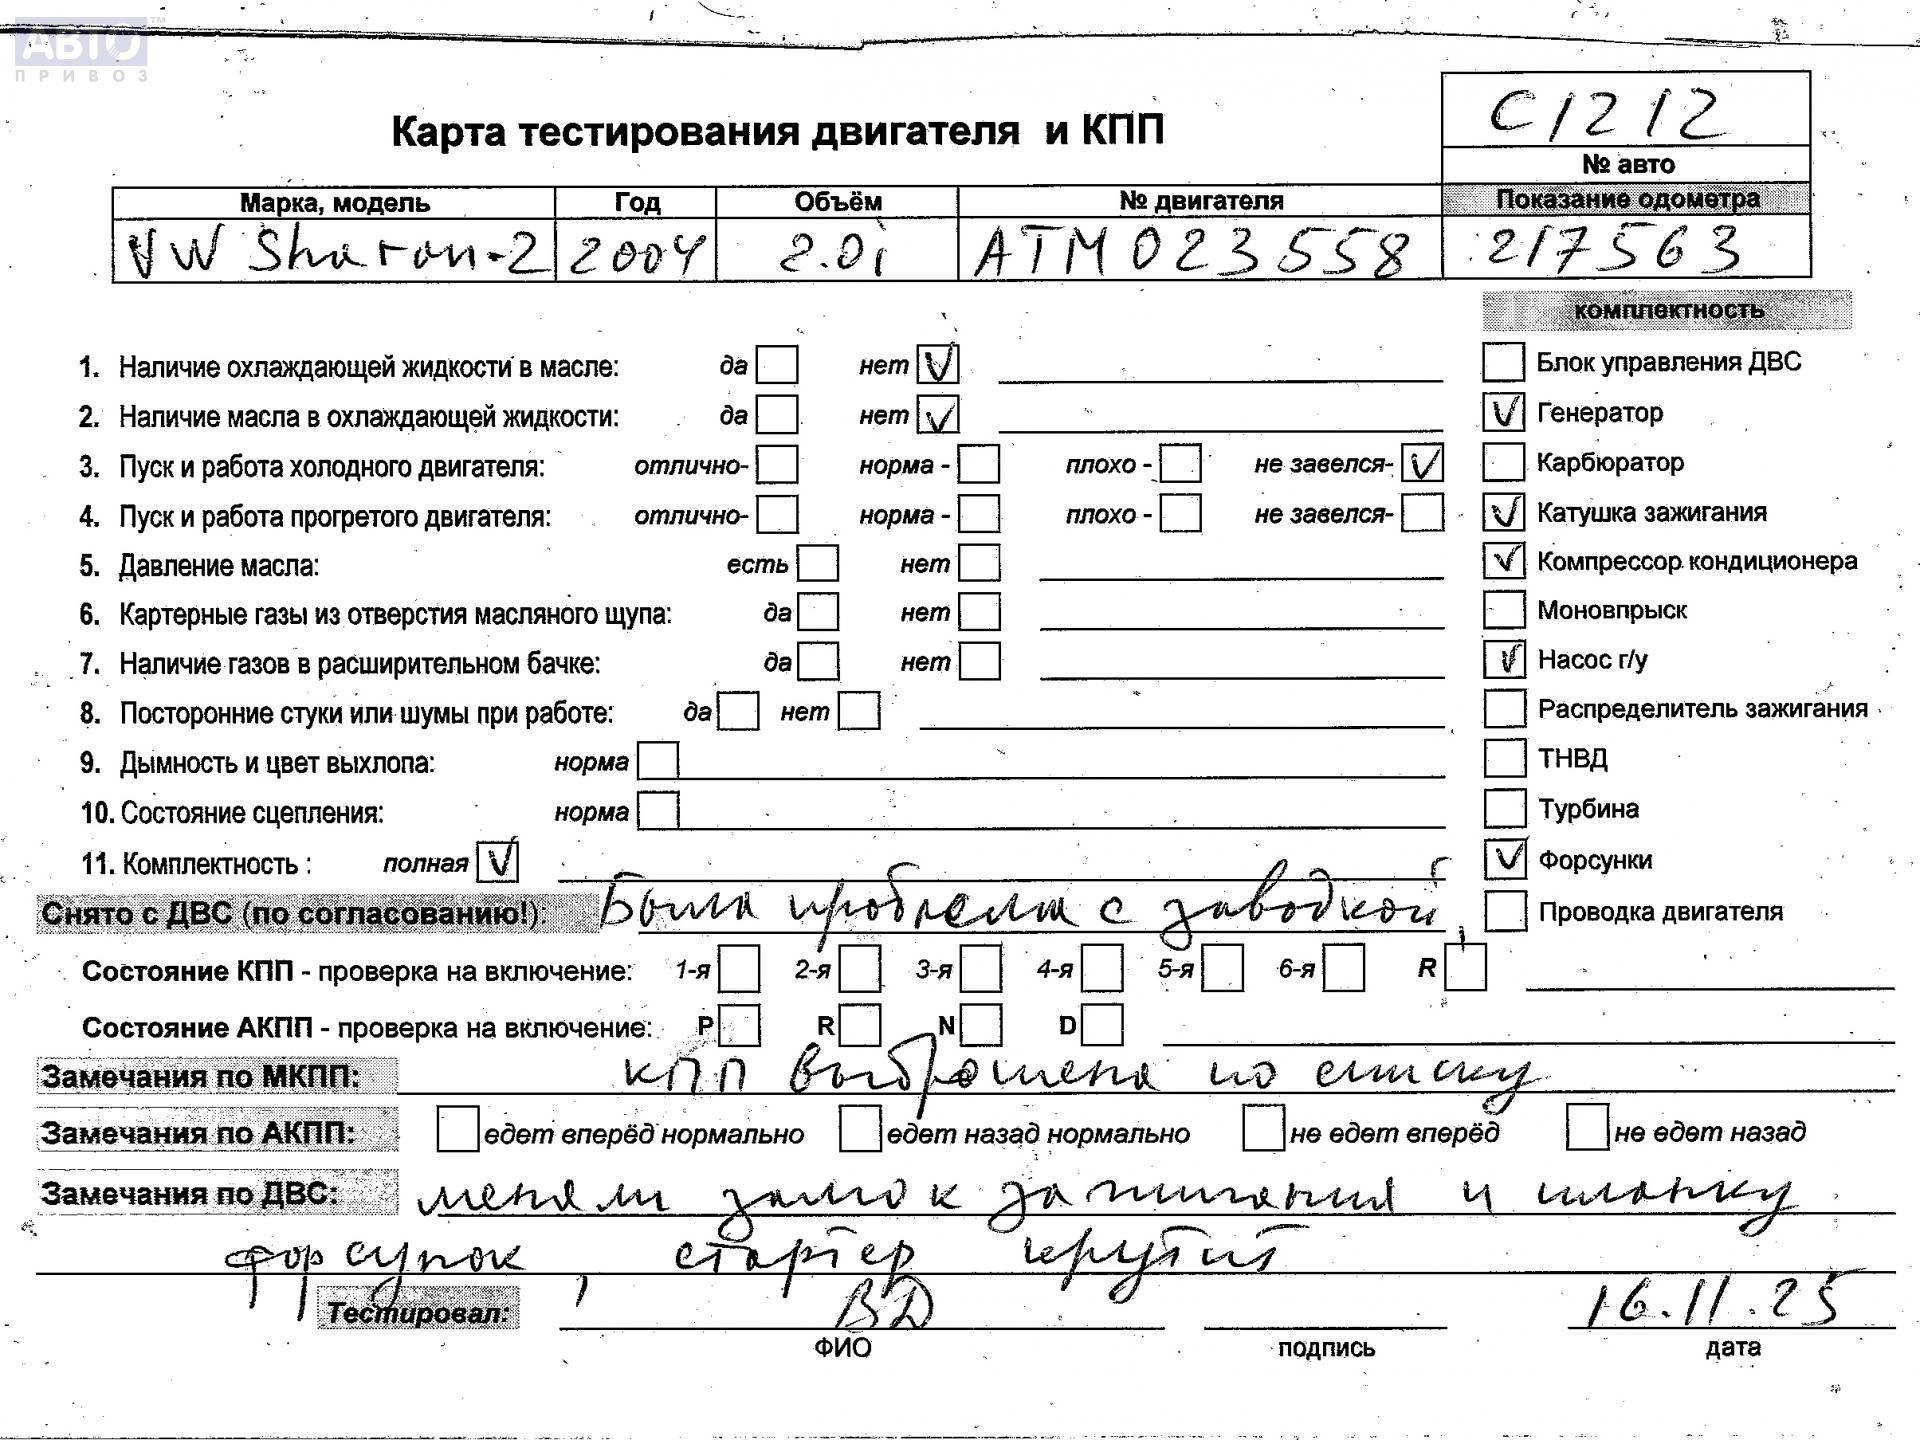 АВТО™
ПРИВОЗ
С1212
Карта тестирования двигателя и КПП
№ авто
Марка, модель Год Объём № двигателя Показание одометра
VW Sharan-2 2004 2.0i ATM 023558 217563
комплектность
1. Наличие охлаждающей жидкости в масле: да нет V Блок управления ДВС
2. Наличие масла в охлаждающей жидкости: да нет V V Генератор
3. Пуск и работа холодного двигателя: отлично- норма - плохо - не завелся- V Карбюратор
4. Пуск и работа прогретого двигателя: отлично- норма - плохо - не завелся- V Катушка зажигания
5. Давление масла: есть нет V Компрессор кондиционера
6. Картерные газы из отверстия масляного щупа: да нет Моновпрыск
7. Наличие газов в расширительном бачке: да нет V Насос г/у
8. Посторонние стуки или шумы при работе: да нет Распределитель зажигания
9. Дымность и цвет выхлопа: норма ТНВД
10. Состояние сцепления: норма Турбина
11. Комплектность : полная V V Форсунки
Снято с ДВС (по согласованию!): Была проблема с заводкой, Проводка двигателя
Состояние КПП - проверка на включение: 1-я 2-я 3-я 4-я 5-я 6-я R
Состояние АКПП - проверка на включение: P R N D
Замечания по МКПП: КПП выброшена по списку
Замечания по АКПП: едет вперёд нормально едет назад нормально не едет вперёд не едет назад
Замечания по ДВС: меняли замок зажигания и планку
форсунок, стартер крутит
Тестировал: ВД 16.11.25
ФИО подпись дата